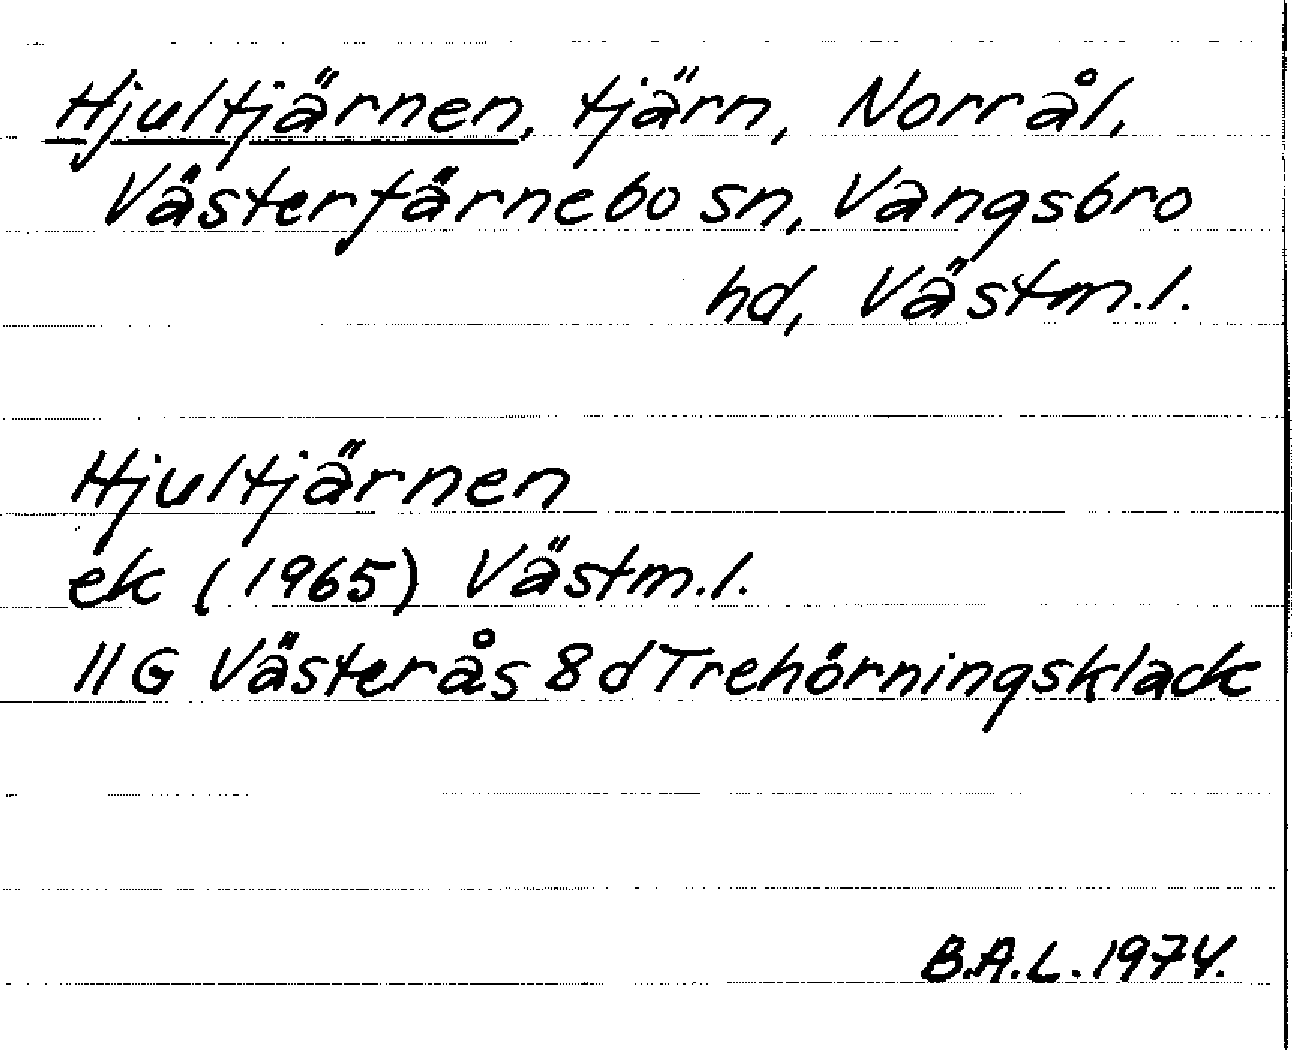 Hjultjärnen, tjärn, Norrål,
Västerfärnebo sn, Vangsbro
hd, Västm.l.
Hjultjärnen
ek (1965) Västm.l.
11G Västerås 8d Trehörningsklack
B.A.L. 1974.